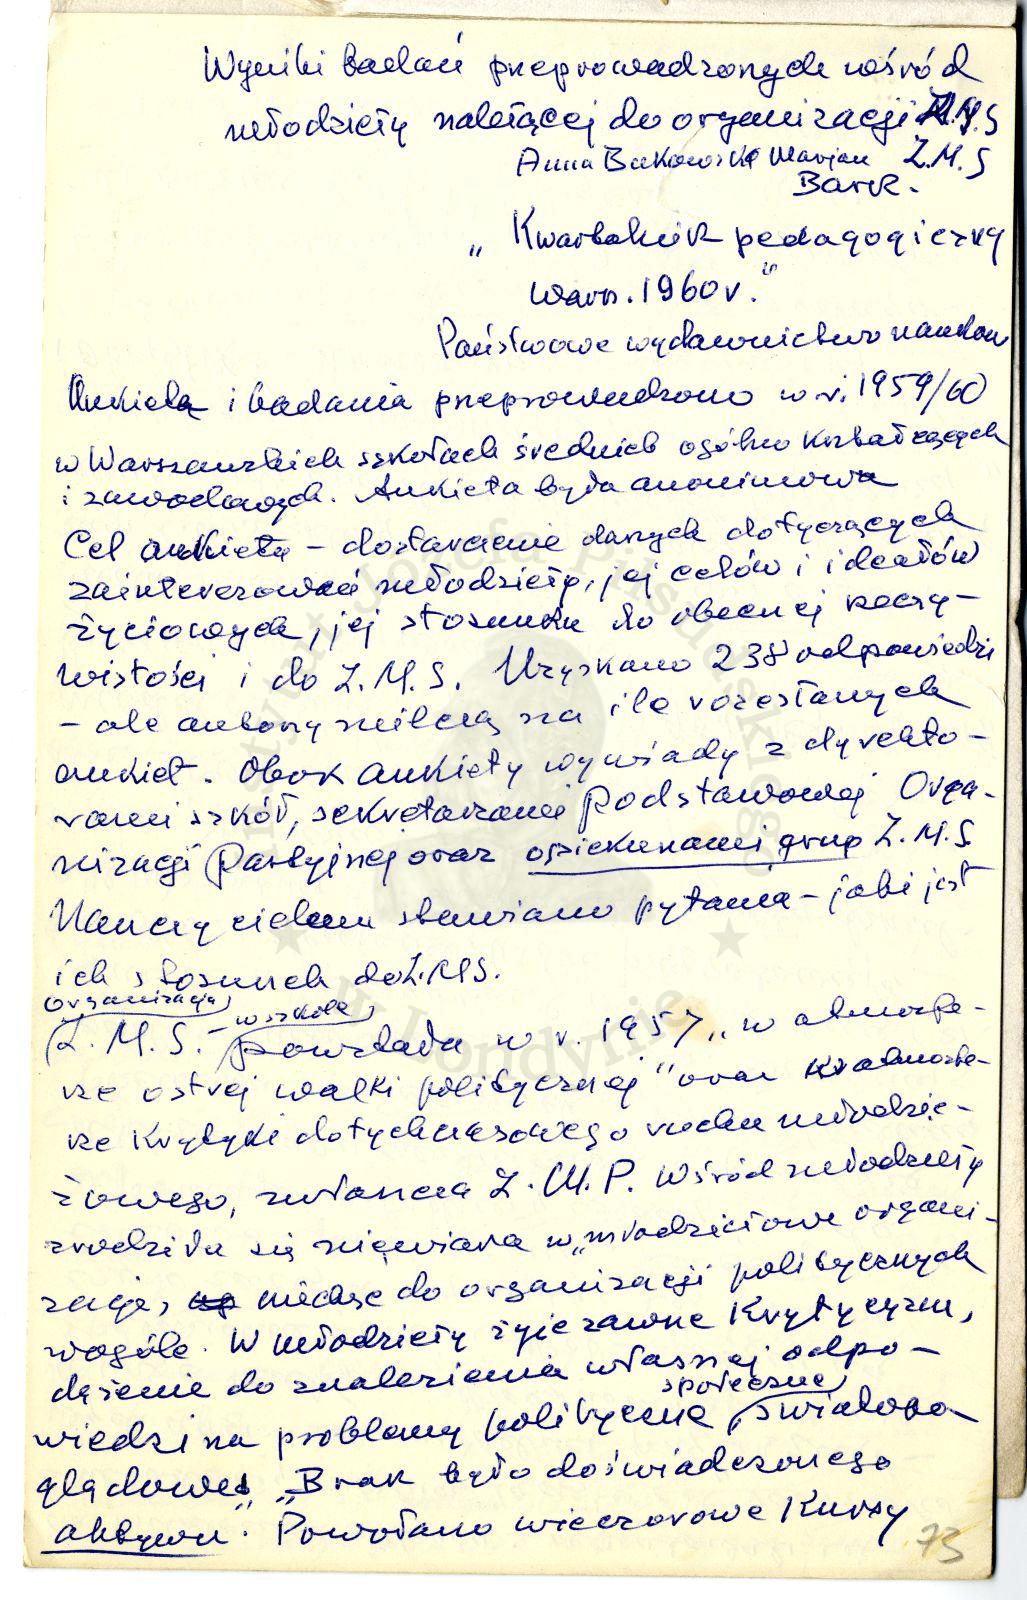 Wyniki badań przeprowadzonych wśród
młodzieży należącej do organizacji Z.M.S
Anna Bukowska Marjan Z.M.S
Barek.
„Kwartalnik pedagogiczny
Wars. 1960 r."
Państwowe wydawnictwo naukow
Ankieta i badania przeprowadzono w r. 1959/60
w Warszawskich szkołach średnich ogólno kształcących
i zawodowych. Ankieta była anonimowa
Cel ankiety – dostarczenie danych dotyczących
zainteresowań młodzieży, jej celów i ideałów
życiowych, jej stosunku do obecnej rzeczy-
wistości i do Z.M.S. Uzyskano 238 odpowiedzi
– ale autorzy milczą na ile rozesłanych
ankiet. Obok ankiety wywiady z dyrekto-
rami szkół, sekretarzami Podstawowej Orga-
nizacji Partyjnej oraz opiekunami grup Z.M.S
Nauczycielom stawiano pytania – jaki jest
ich stosunek do Z.M.S.
organizacja w szkole
Z.M.S. – powstała w r. 1957 „w atmosfe-
rze ostrej walki politycznej" oraz w atmosfe-
rze krytyki dotychczasowego ruchu młodzie-
żowego, zwłaszcza Z.M.P. Wśród młodzieży
zrodziła się niewiara w „młodzieżowe organi-
zacje, niechęć do organizacji politycznych
wogóle. W młodzieży żyje zawsze krytycyzm,
dążenie do znalezienia własnej odpo-
społeczne
wiedzi na problemy polityczne, światopo-
glądowe". „Brak było doświadczonego
aktywu". Powołano wieczorowe kursy
73
Instytut Józefa Piłsudskiego
w Londynie